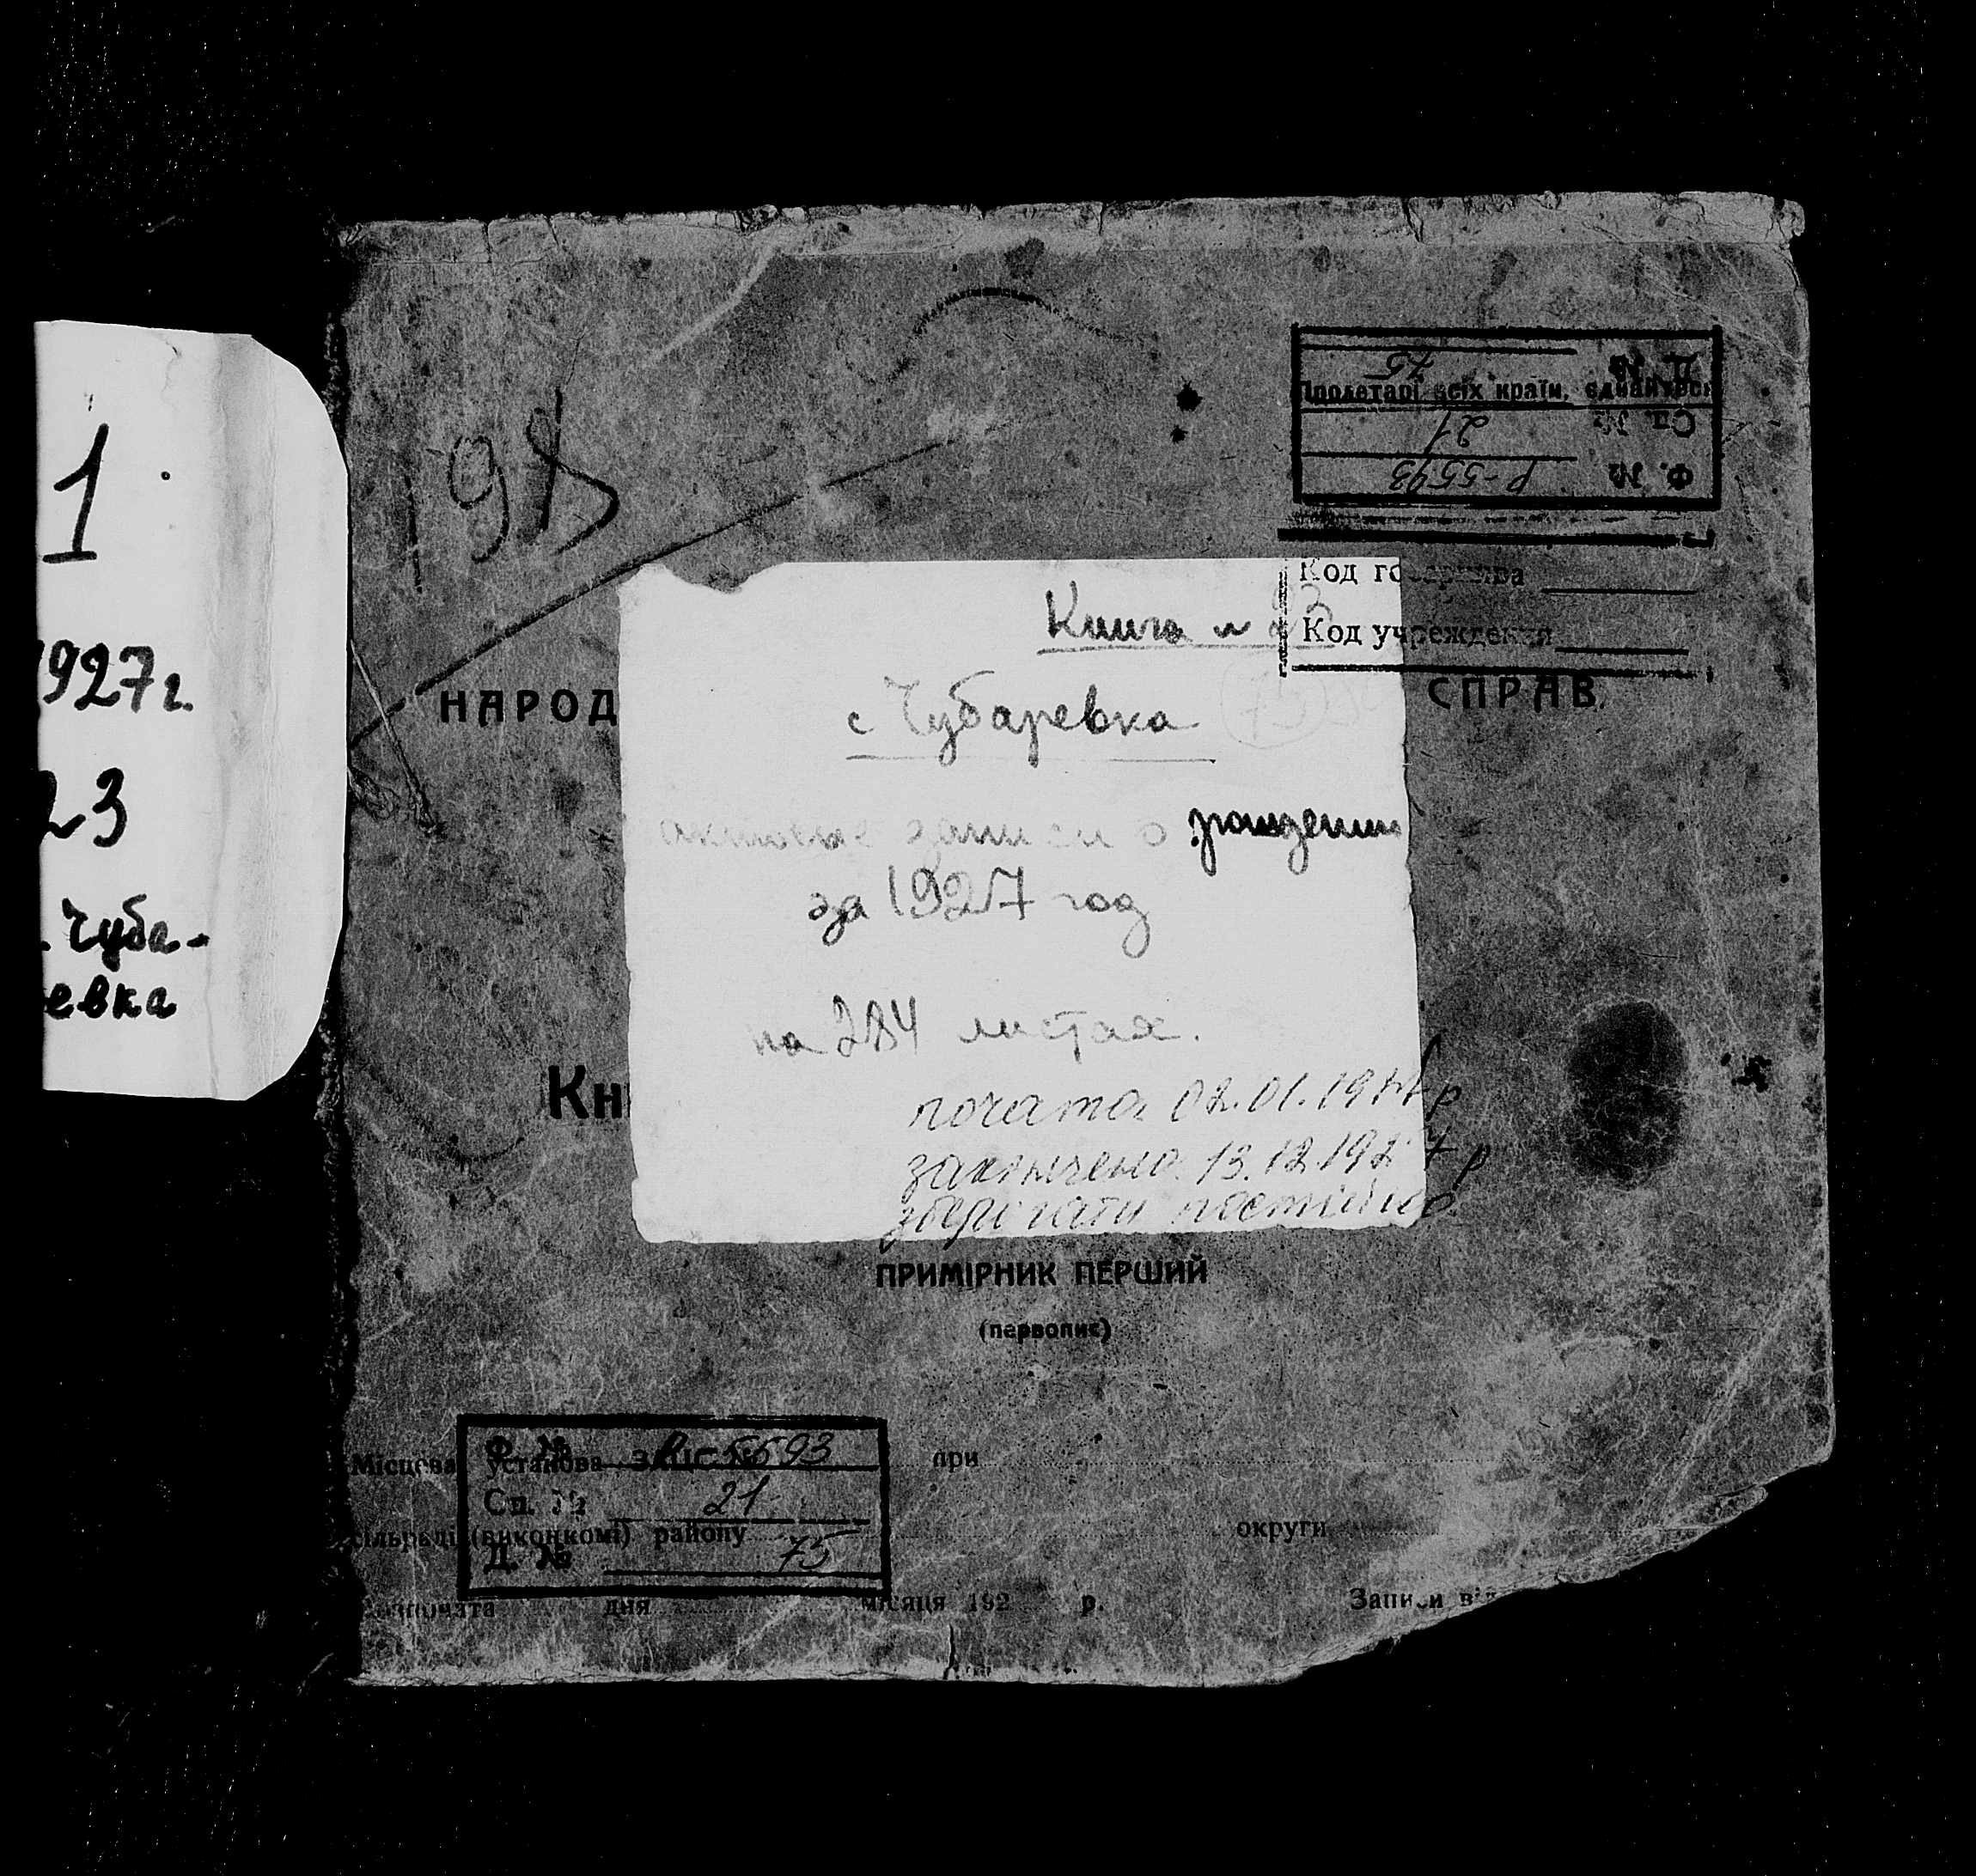 1
1927г.
23
Чуба-
евка
198
Д. № 75
Пролетарі всіх країн, єднайтеся
Сп. № 21
Ф. № Р-5593
Код госархива
Код учреждения
Книга № 23
НАРОД
СПРАВ.
с Чубаревка
75
актовые записи о рождении
за 1927 год
на 284 листах.
Кн
почата 02.01.1927 р
закінчено 13.12.1927 р
зберігати постійно.
ПРИМІРНИК ПЕРШИЙ
(первопис)
Ф. № Р-5593
Місцева установа ЗАГС'у при
Сп. № 21
сільраді (виконкомі) району округи
Д. № 75
Розпочата дня місяця 192 р. Записи від